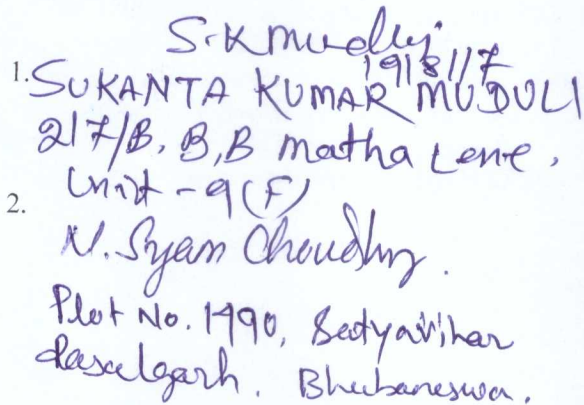 S.K Muduli
19/8/17
1. SUKANTA KUMAR MUDULI
217/B, B,B matha Lene,
Unit - 9(F)
2.
N. Syam Choudhry.
Plot No. 1490, Satyavihar
Rasulgarh, Bhubaneswar.